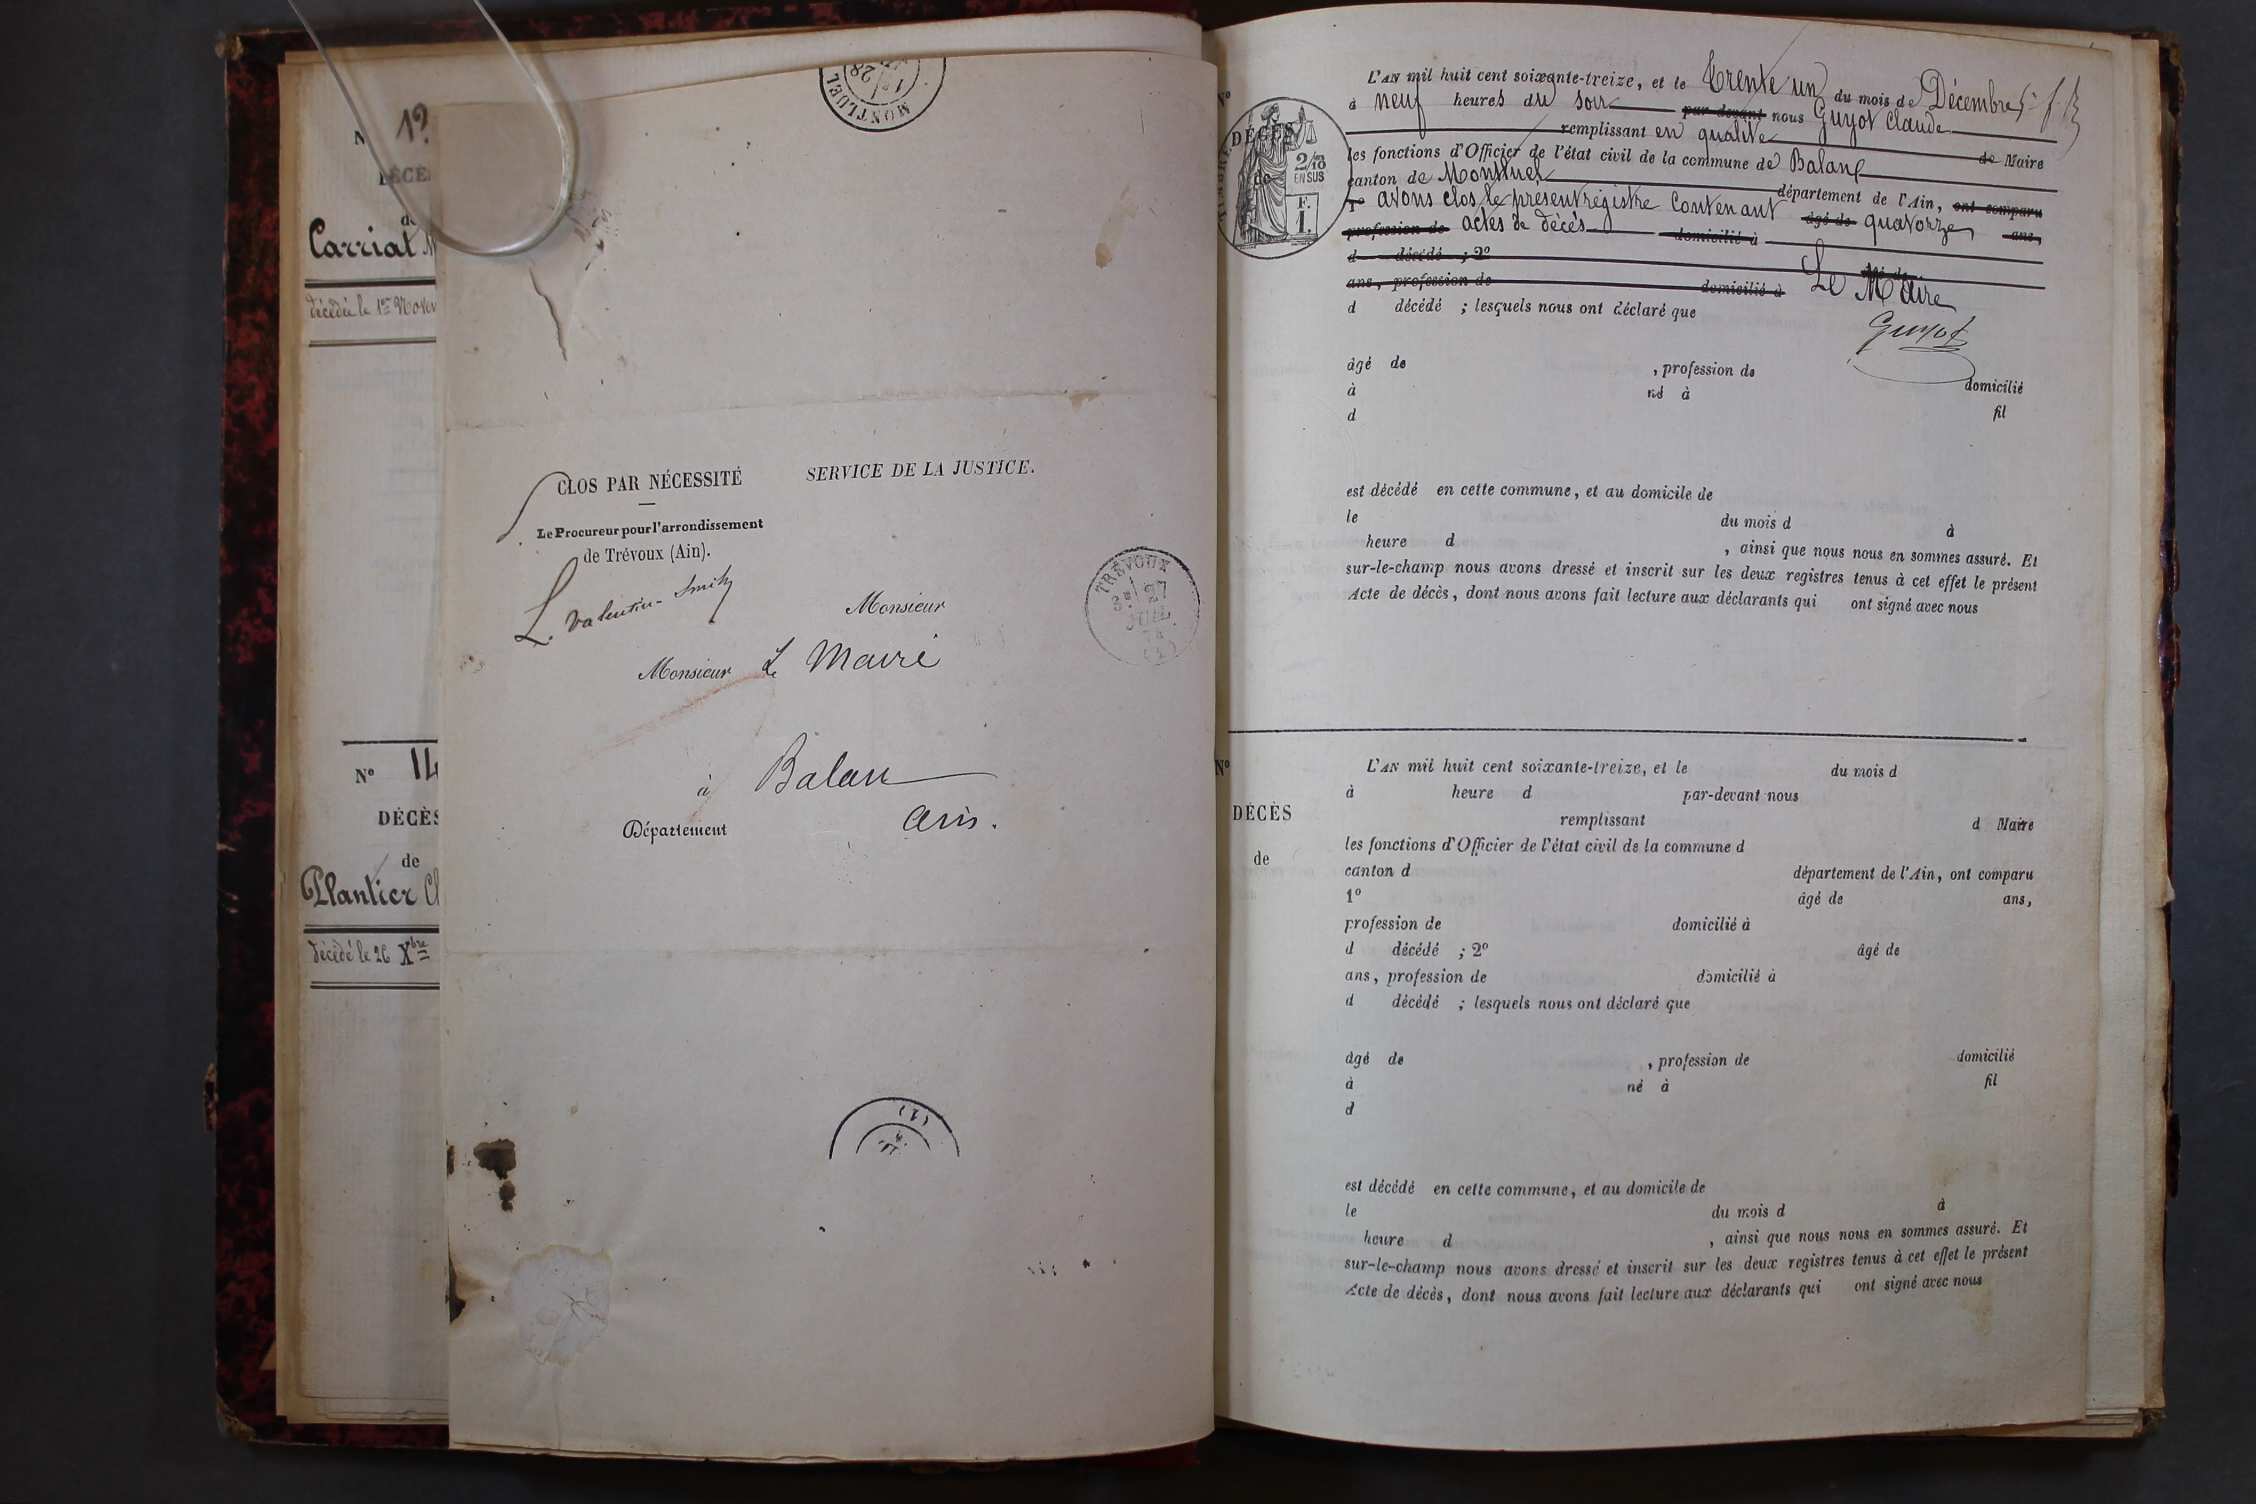 N
DÉCÈS
de
Carriat
décédée le 1er Novem
N° 14
DÉCÈS
de
Plantier Cl
décédé le 26 Xbre
MONTLUEL
28
CLOS PAR NÉCESSITÉ
SERVICE DE LA JUSTICE.
Le Procureur pour l'arrondissement
de Trévoux (Ain).
L. Valentin-Smith
TRÉVOUX
27
JUIL.
Monsieur
Monsieur Le Maire
à Balan
Département Ain.
N°
DÉCÈS
de
TIMBRE
2/10
EN SUS
F.
1.
L'AN mil huit cent soixante-treize, et le Trente un du mois de Décembre
à neuf heures du soir par-devant nous Guyot Claude
remplissant en qualité de Maire
les fonctions d'Officier de l'état civil de la commune de Balan
canton de Montluel département de l'Ain, ont comparu
1° avons clos le présent régistre contenant âgé de quatorze ans,
profession de actes de décès domicilié à
d décédé ; 2° âgé de
ans, profession de domicilié à Le Maire
d décédé ; lesquels nous ont déclaré que
Guyot
âgé de , profession de domicilié
à né à fil
d
est décédé en cette commune, et au domicile de
le du mois d à
heure d , ainsi que nous nous en sommes assuré. Et
sur-le-champ nous avons dressé et inscrit sur les deux registres tenus à cet effet le présent
Acte de décès, dont nous avons fait lecture aux déclarants qui ont signé avec nous
N°
DÉCÈS
de
L'AN mil huit cent soixante-treize, et le du mois d
à heure d par-devant nous
remplissant d Maire
les fonctions d'Officier de l'état civil de la commune d
canton d département de l'Ain, ont comparu
1° âgé de ans,
profession de domicilié à
d décédé ; 2° âgé de
ans, profession de domicilié à
d décédé ; lesquels nous ont déclaré que
âgé de , profession de domicilié
à né à fil
d
est décédé en cette commune, et au domicile de
le du mois d à
heure d , ainsi que nous nous en sommes assuré. Et
sur-le-champ nous avons dressé et inscrit sur les deux registres tenus à cet effet le présent
Acte de décès, dont nous avons fait lecture aux déclarants qui ont signé avec nous